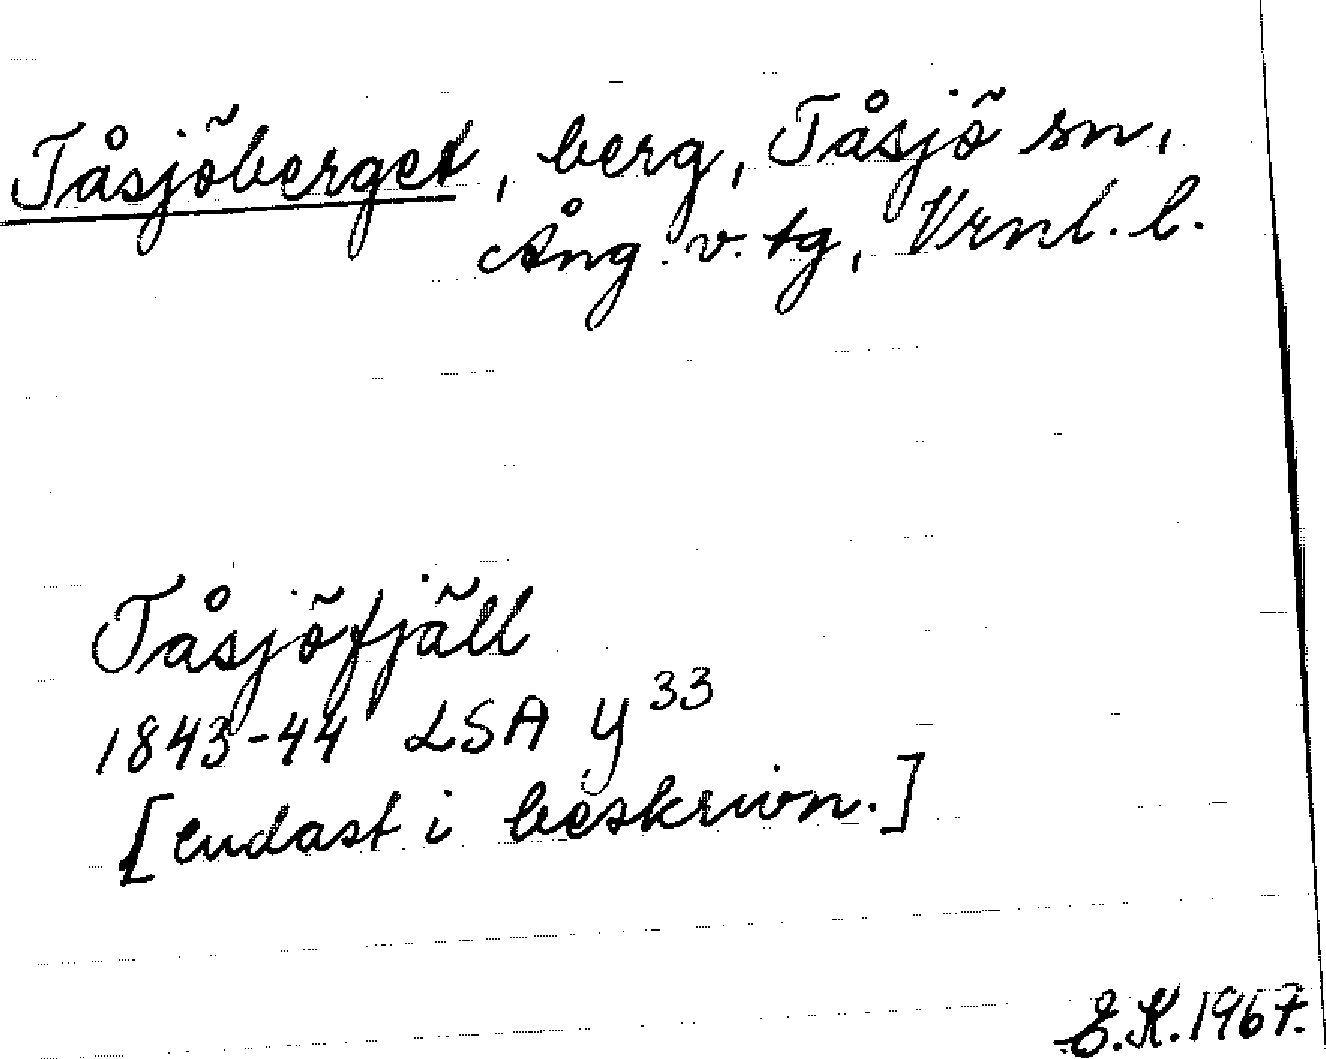 Tåsjöberget, berg, Tåsjö sn,
Ång. v. tg, Vrnl. l.
Tåsjöfjäll
1843-44 LSA Y 33
[endast i beskrivn.]
E.K. 1967.